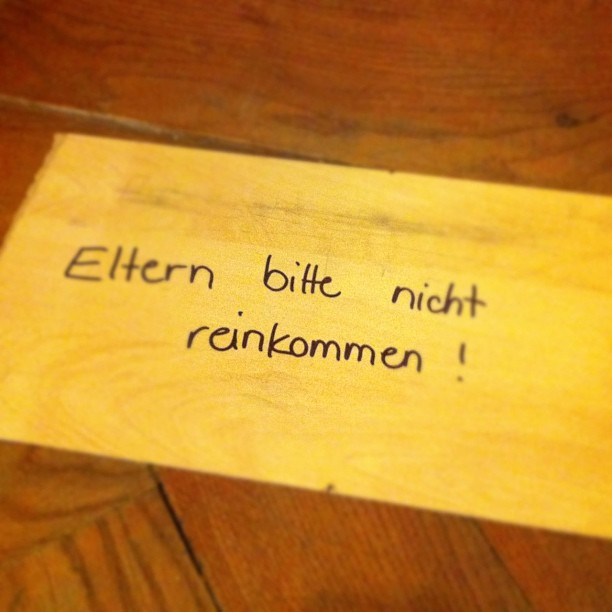 Eltern bitte nicht
reinkommen !